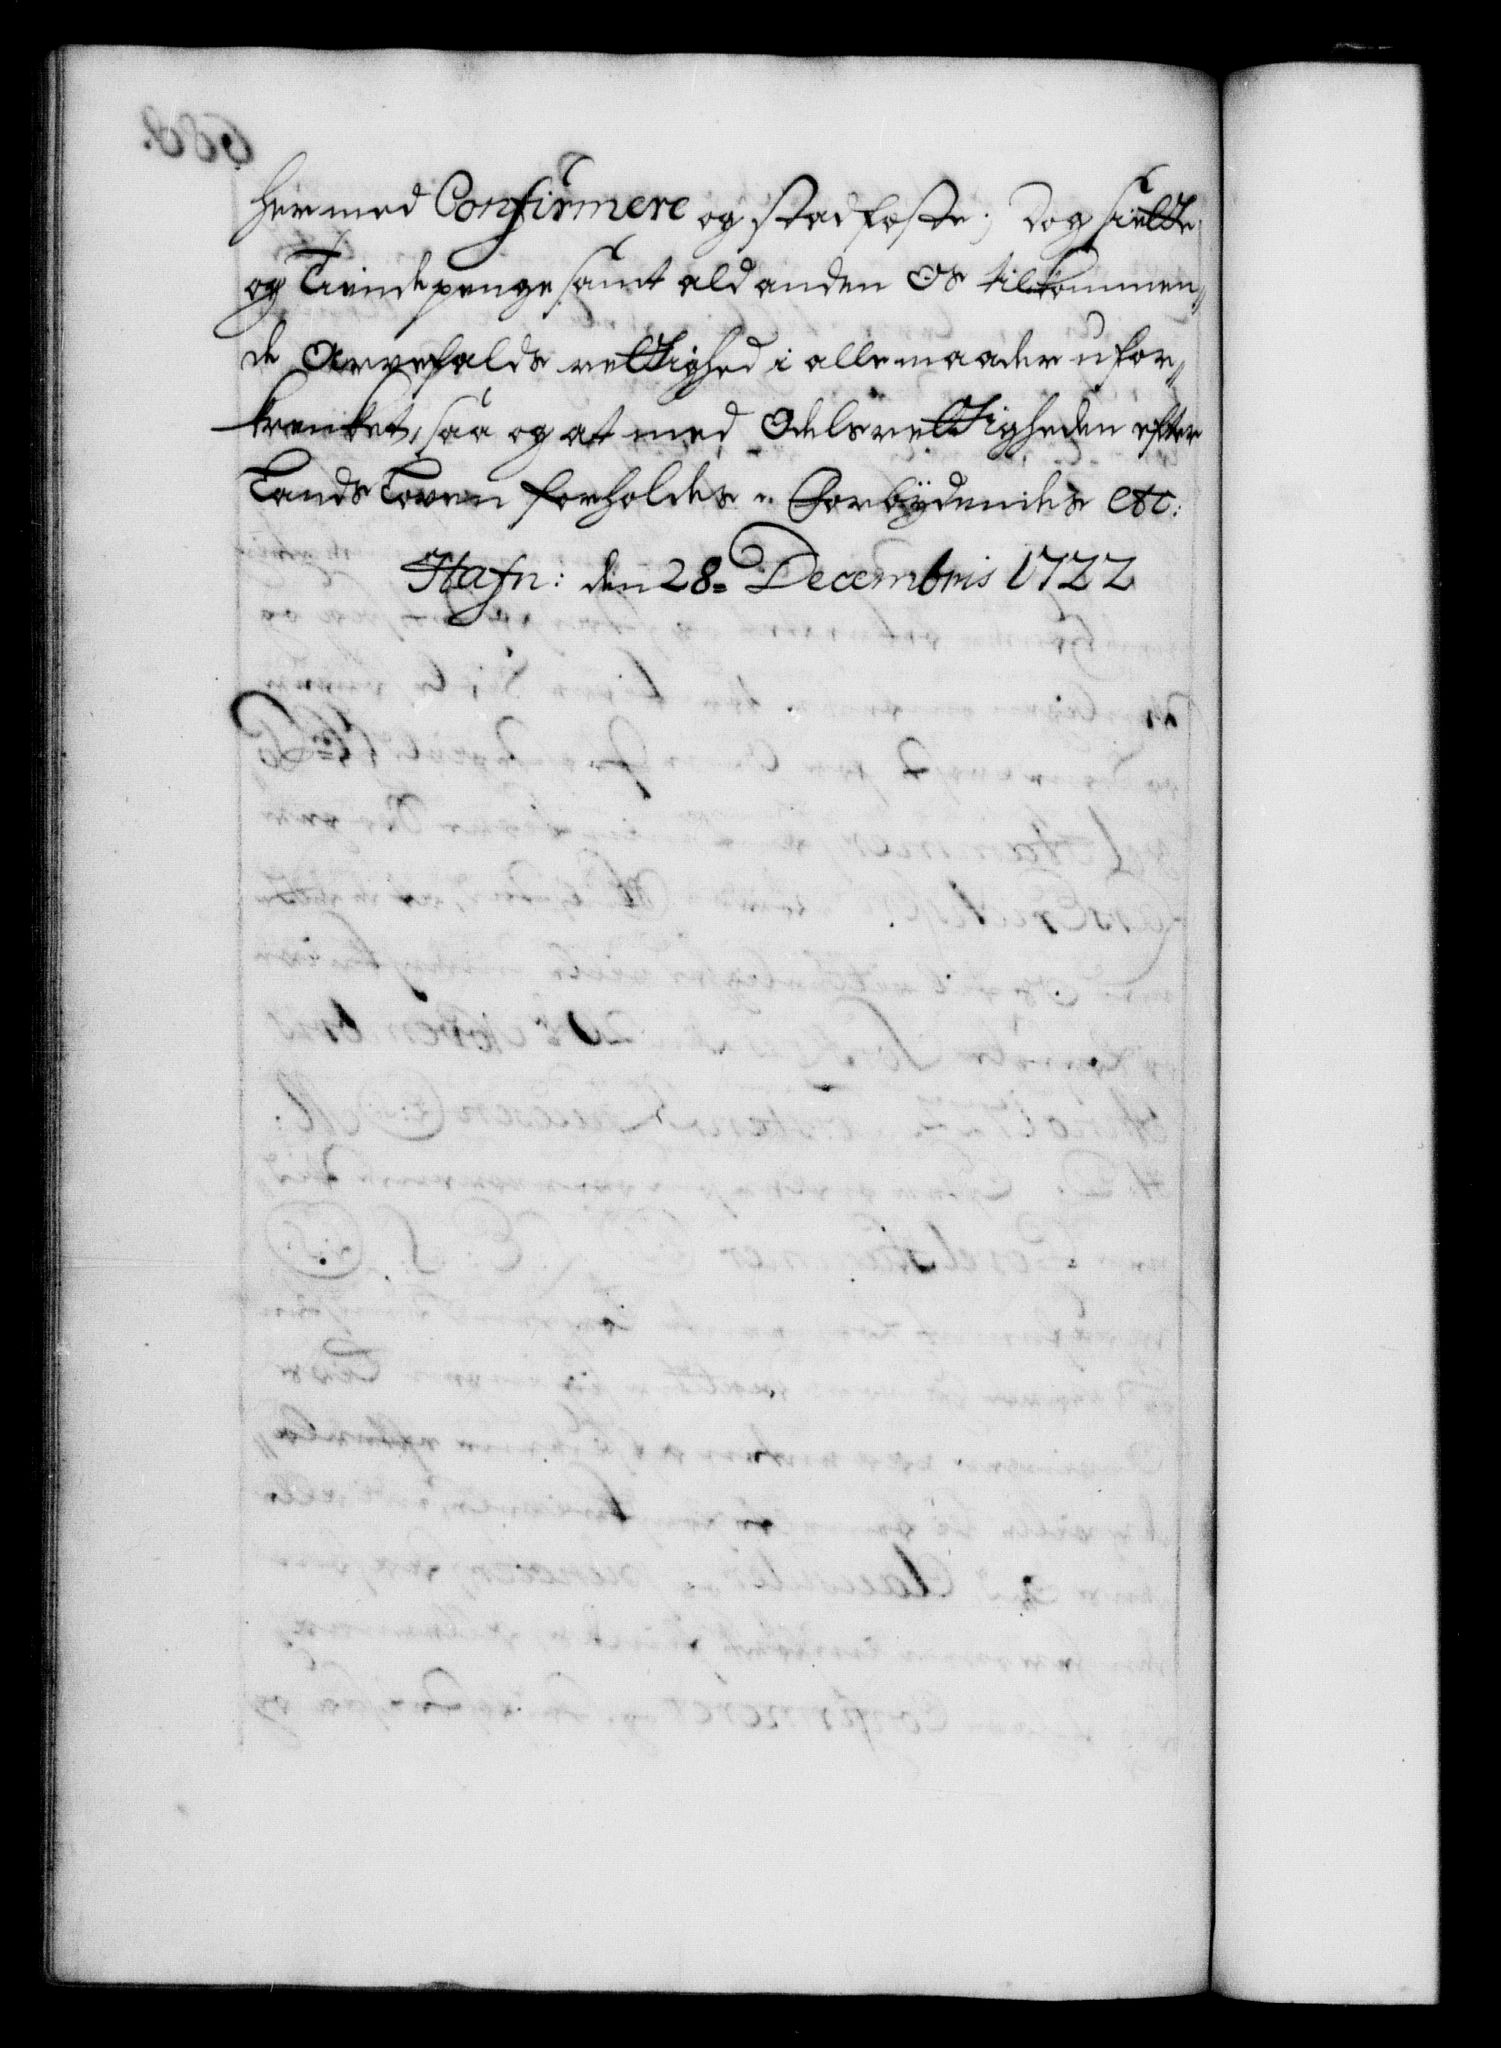 hermed Confirmere og stadfæste; Dog Siette
og Tiende penge samt ald anden Os tilkommen„
de Arvefalds rettighed i alle maader ufor„
krenket, saa og at med Odelsrettigheden efter
Lands Loven forholdes. Forbydendes etc:
Hafn: den 28. Decembris 1722